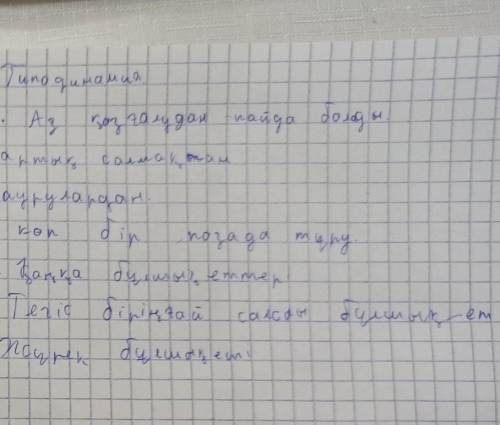 Гиподинамия
. Аз қозғалудан пайда болды.
артық салмақтан
аурулардан.
көп бір позада тұру.
. Қаңқа бұлшық еттер
Тегіс бірыңғай салалы бұлшық-ет
Жүрек бұлшықет.